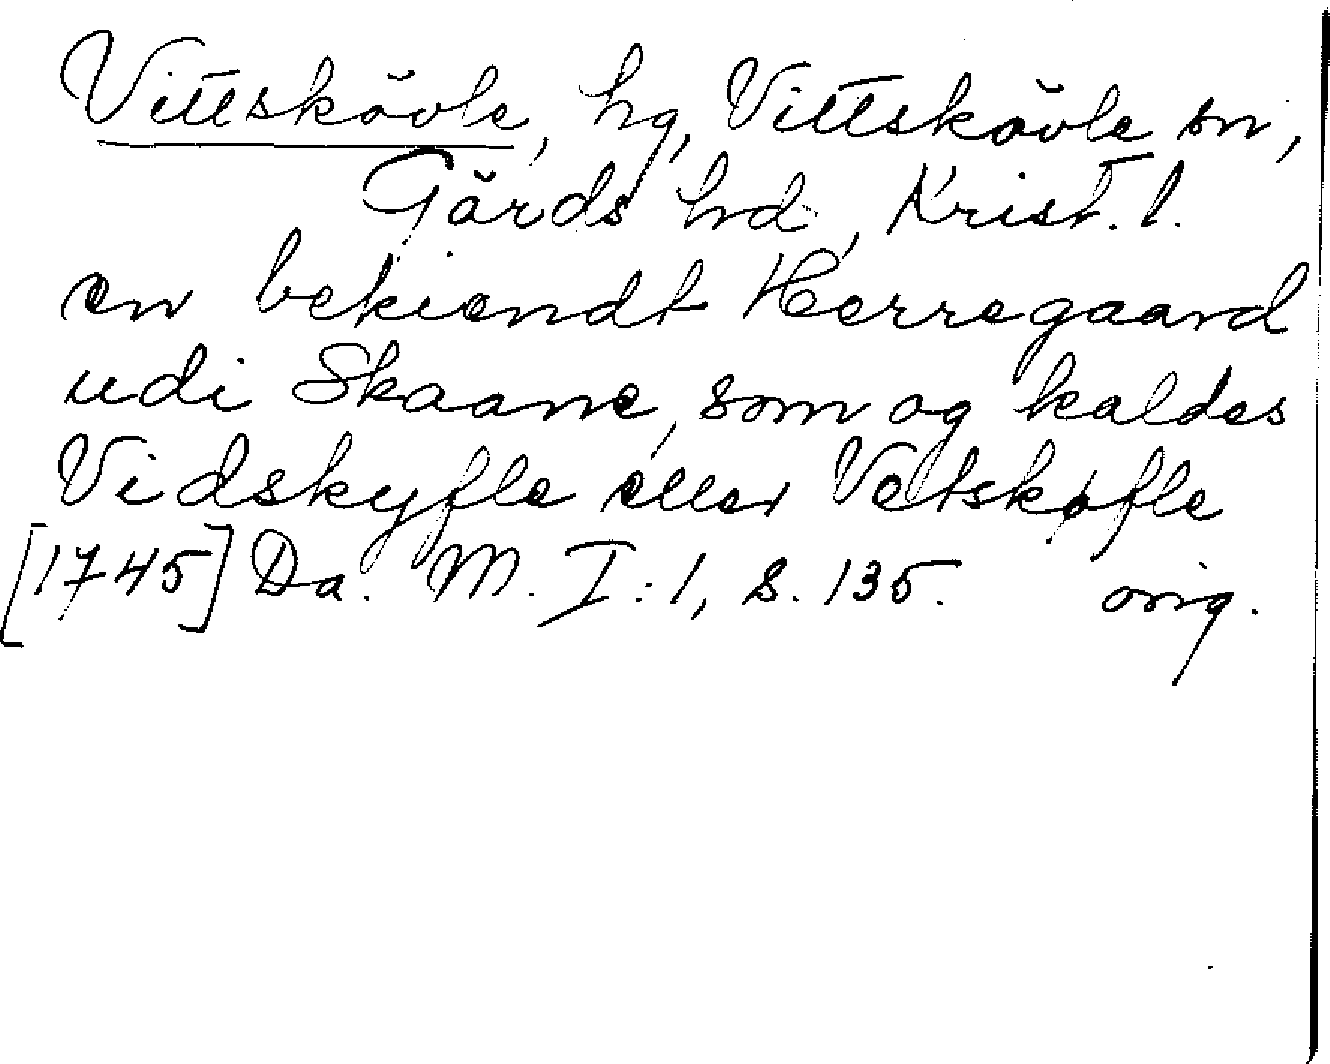 Vittskövle, hg, Vittskövle sn,
Gärds hd, Krist. l.
en bekiendt Herregaard
udi Skaane, som og kaldes
Vidskyfle eller Vetskøfle
[1745] Da. M. I:1, s. 135. orig.